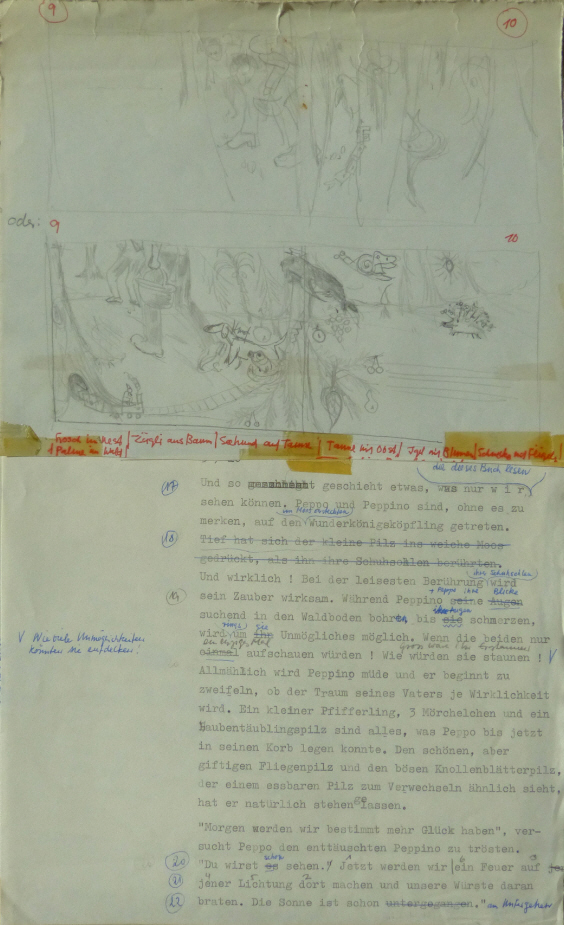 9 10
oder: 9 10
Frosch im Nest / Zügli aus Baum / Seehund auf Tanne / Tanne mit Obst / Igel mit Blumen / Schnecke mit Flügel
1 Palme im Wald
die dieses Buch lesen
17 Und so geschieht etwas, was nur w i r
sehen können. Peppo und Peppino sind, ohne es zu
merken, auf den Wunderkönigsköpfling getreten.
18 Tief hat sich der kleine Pilz ins weiche Moos
gedrückt, als ihn ihre Schuhsohlen berührten.
der Schuhsohlen
Und wirklich ! Bei der leisesten Berührung wird
+ Peppo ihre Blicke
19 sein Zauber wirksam. Während Peppino seine Augen
suchend in den Waldboden bohren bis sie schmerzen,
wird um ihn Unmögliches möglich. Wenn die beiden nur
einmal aufschauen würden ! Wie würden sie staunen ! V
V Wieviele Unmöglichkeiten
könnten sie entdecken!
Allmählich wird Peppino müde und er beginnt zu
zweifeln, ob der Traum seines Vaters je Wirklichkeit
wird. Ein kleiner Pfifferling, 3 Mörchelchen und ein
Haubentäublingspilz sind alles, was Peppo bis jetzt
in seinen Korb legen konnte. Den schönen, aber
giftigen Fliegenpilz und den bösen Knollenblätterpilz,
der einem essbaren Pilz zum Verwechseln ähnlich sieht,
hat er natürlich stehen ge lassen.
"Morgen werden wir bestimmt mehr Glück haben", ver-
sucht Peppo den enttäuschten Peppino zu trösten.
20 "Du wirst es schon sehen. Jetzt werden wir ein Feuer auf
21 jener Lichtung dort machen und unsere Würste daran
22 braten. Die Sonne ist schon untergegangen." am Untergehen